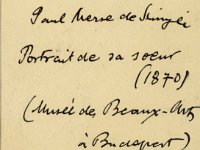 Paul Merse de Szinyei
Portrait de sa soeur
(1870)
(Musée des Beaux-Arts
à Budapest)